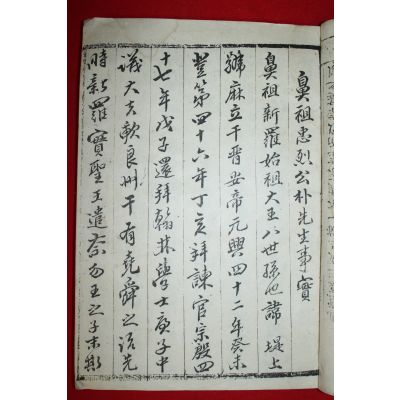 鼻祖忠烈公朴先生事實
鼻祖新羅始祖大王八世孫也諱堤上
麻立干晋安帝元興四十二年癸未
登第四十六年丁亥拜諫官宗殷四
十七年戊子還拜翰林學士庚子中
議大夫歃良州干有堯舜之治先
時新羅實聖王遣奈勿王之子未斯